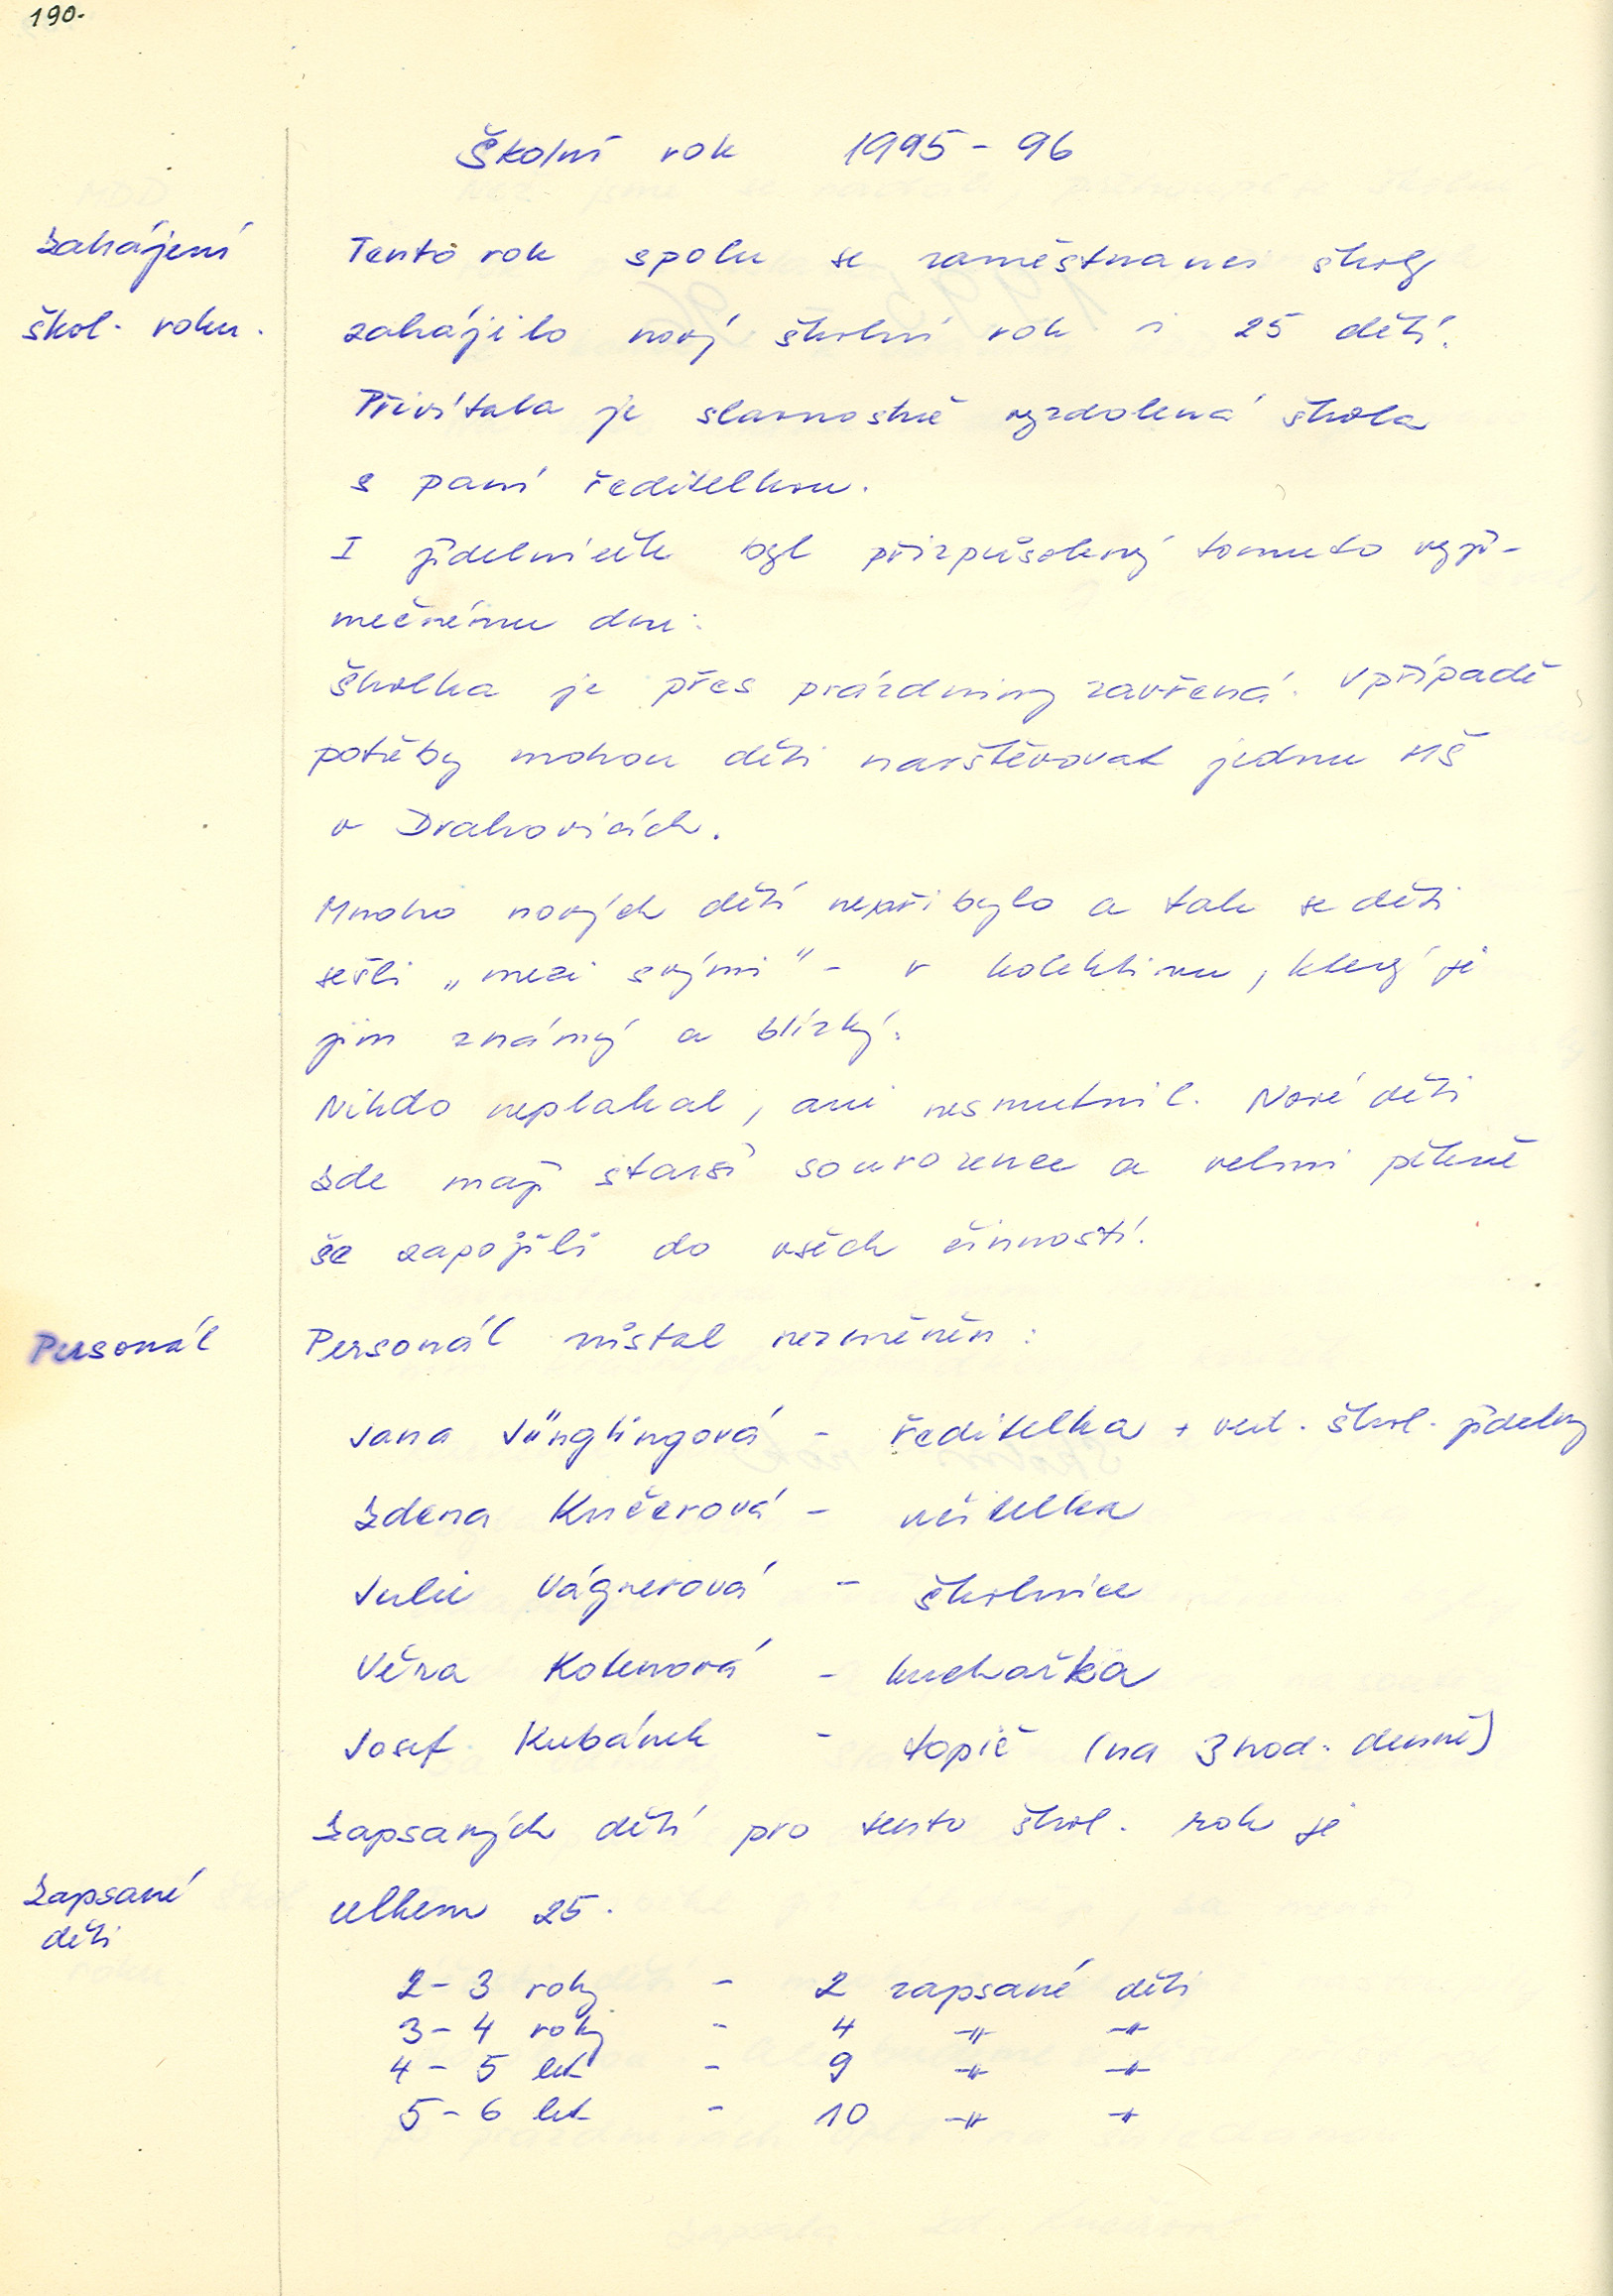 190.
Školní rok 1995 - 96
Zahájení
škol. roku.
Tento rok spolu se zaměstnanci školy
zahájilo nový školní rok i 25 dětí.
Přivítala je slavnostně vyzdobená škola
s paní ředitelkou.
I jídelníček byl přizpůsobený tomuto výji-
mečnému dnu.
Školka je přes prázdniny zavřená. V případě
potřeby mohou děti navštěvovat jednu MŠ
v Drahovicích.
Mnoho nových dětí nepřibylo a tak se děti
sešli „mezi svými" - v kolektivu, který je
jim známý a blízký.
Nikdo neplakal, ani nesmutnil. Nové děti
zde mají starší sourozence a velmi pěkně
se zapojili do všech činností.
Personál
Personál zůstal nezměněn:
Jana Jünglingová - ředitelka + ved. škol. jídelny
Zdena Kučerová - učitelka
Julie Vágnerová - školnice
Věra - kuchařka
Josef Kubánek - topič (na 3 hod. denně)
Zapsaných dětí pro tento škol. rok je
Zapsané
děti
celkem 25.
2 - 3 roky - 2 zapsané děti
3 - 4 roky - 4 -"- -"-
4 - 5 let - 9 -"- -"-
5 - 6 let - 10 -"- -"-